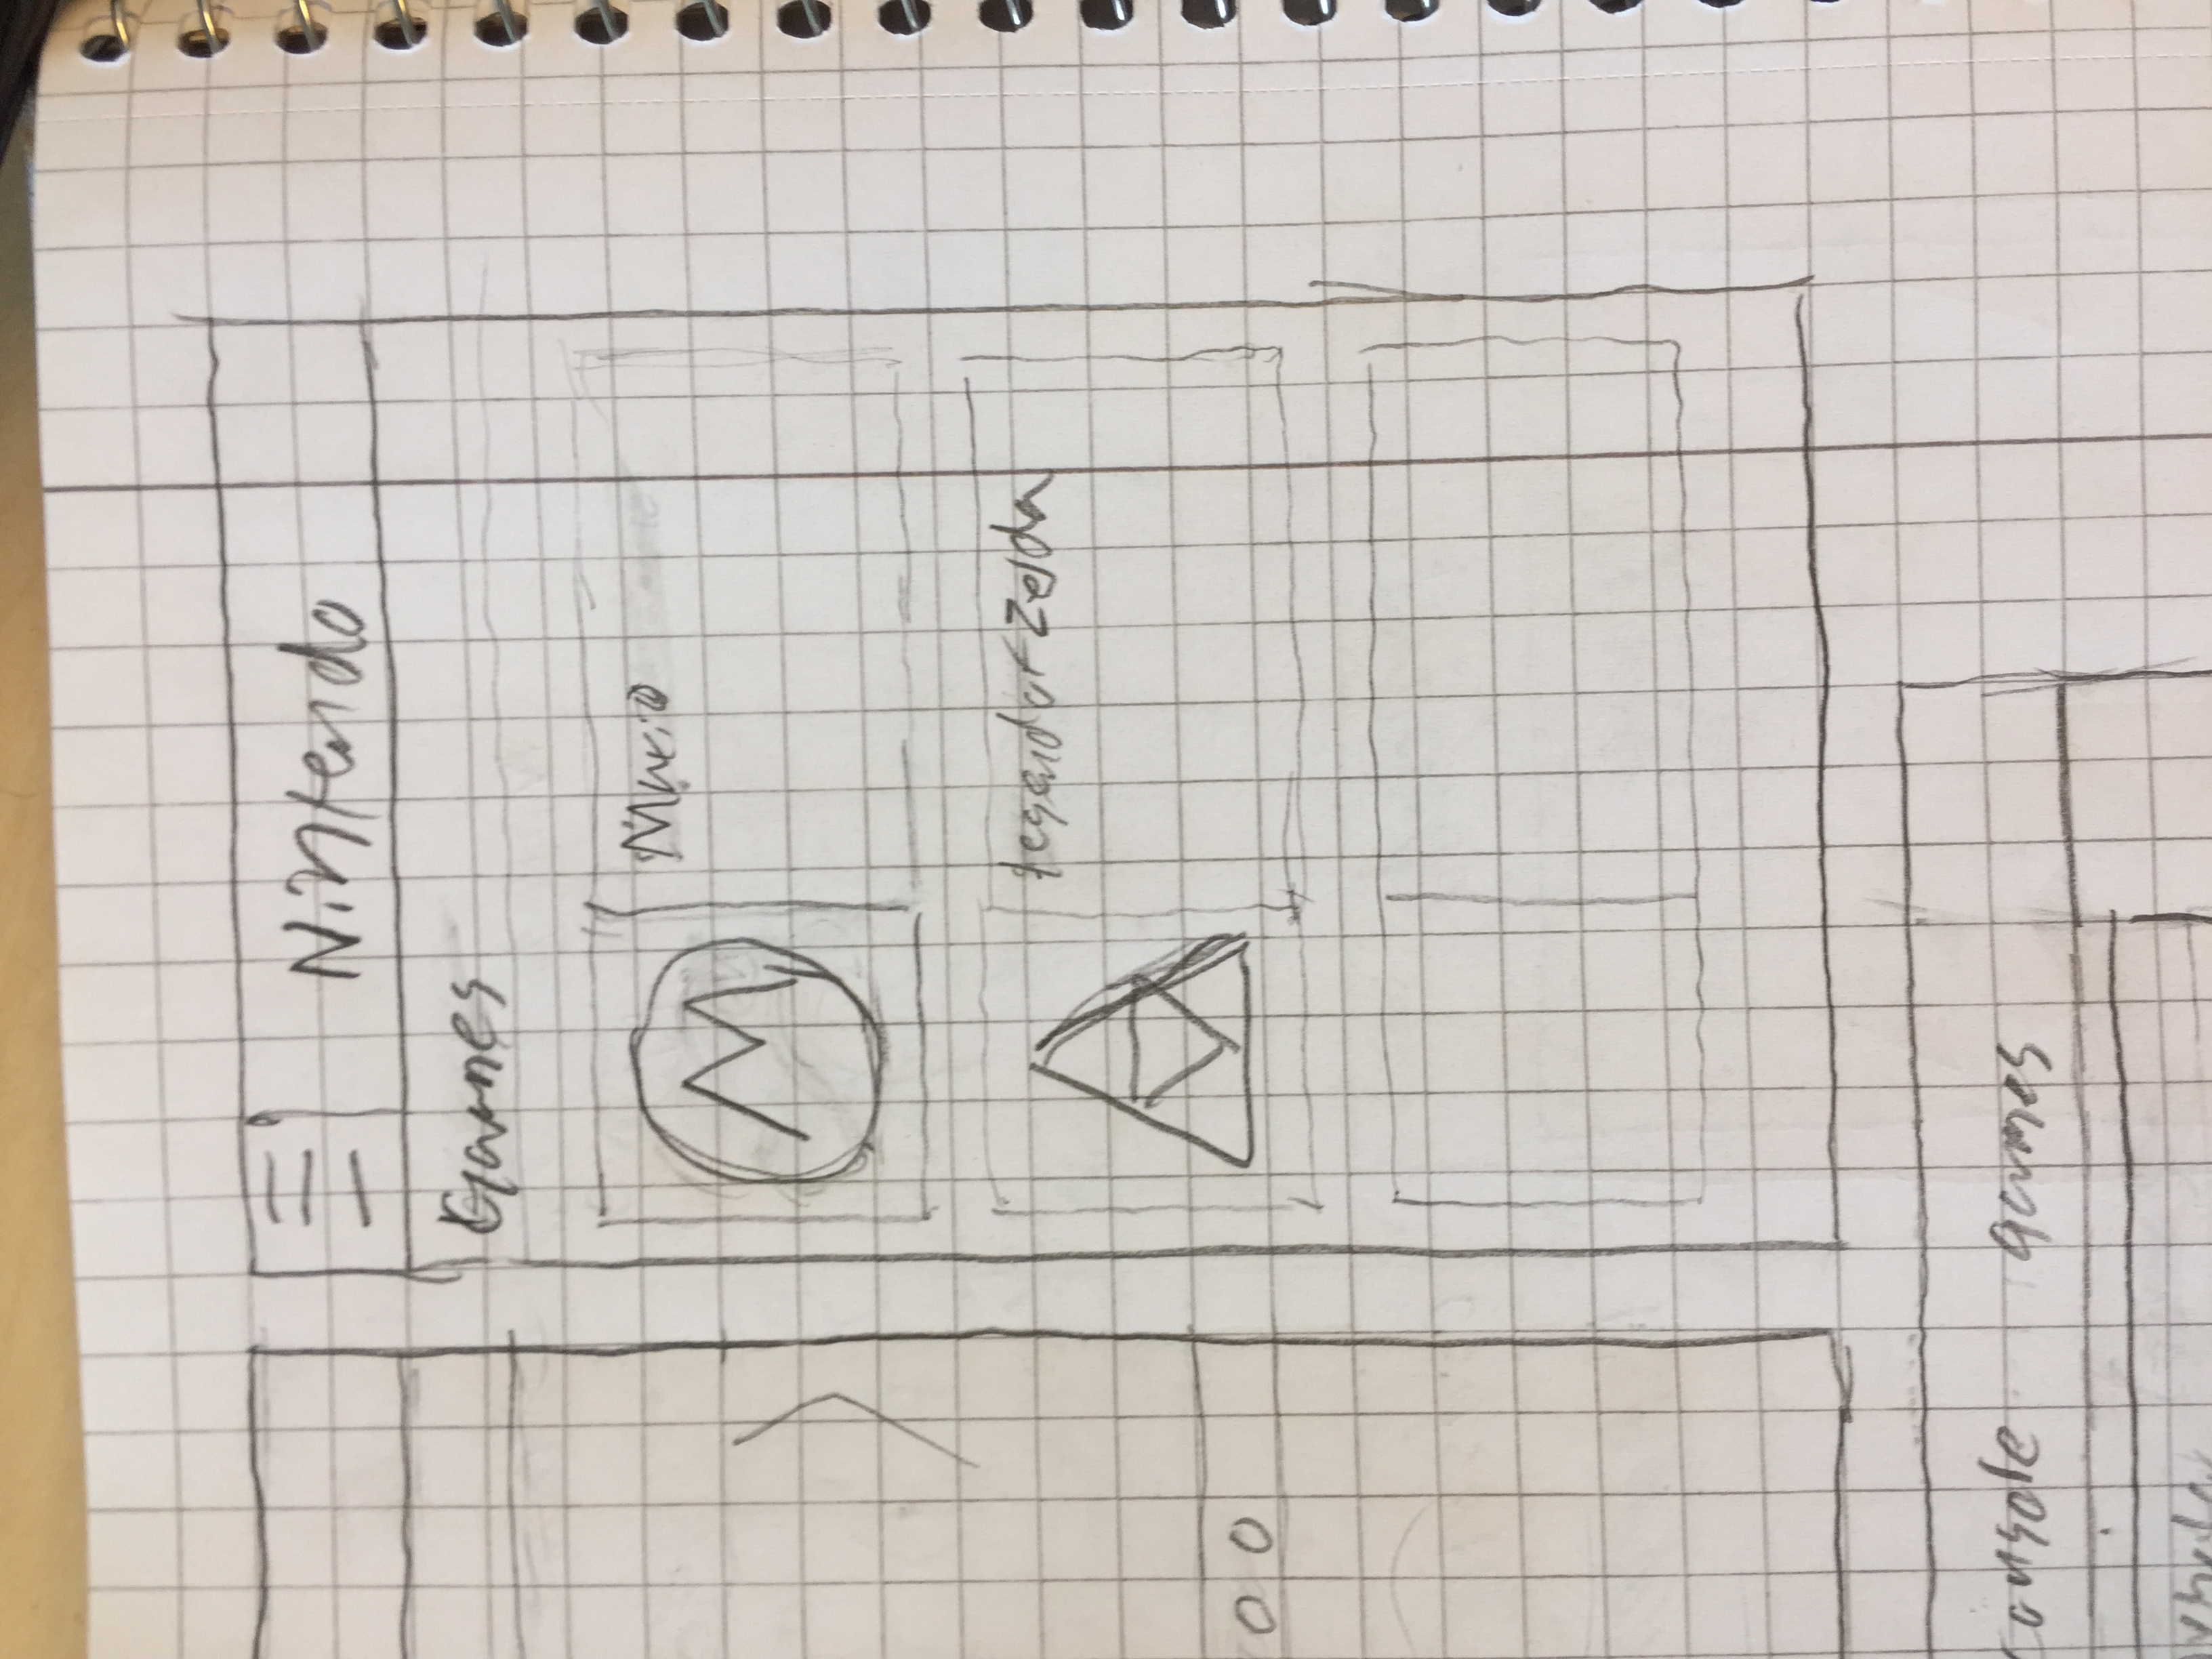 Nintendo
Games
M
Mario
Legend of Zelda
console games